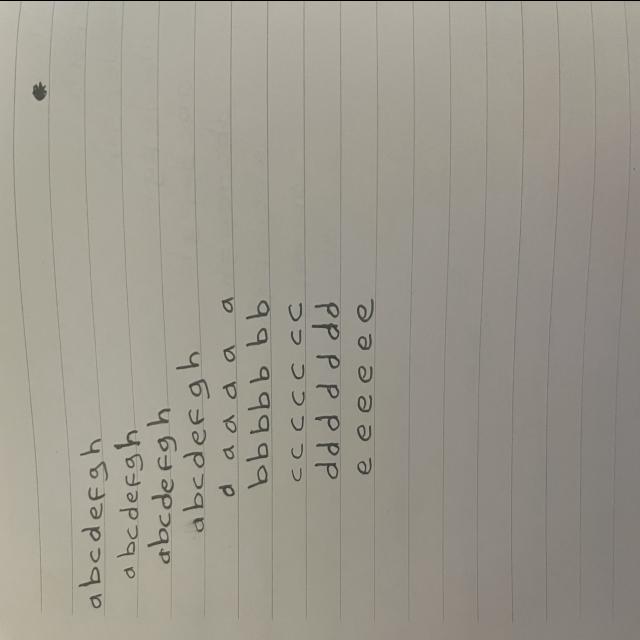 abcdefgh
abcdefgh
abcdefgh
abcdefgh
a a a a a a
bbbbb bb
ccccc cc
ddd d d d dd
e e e e e e